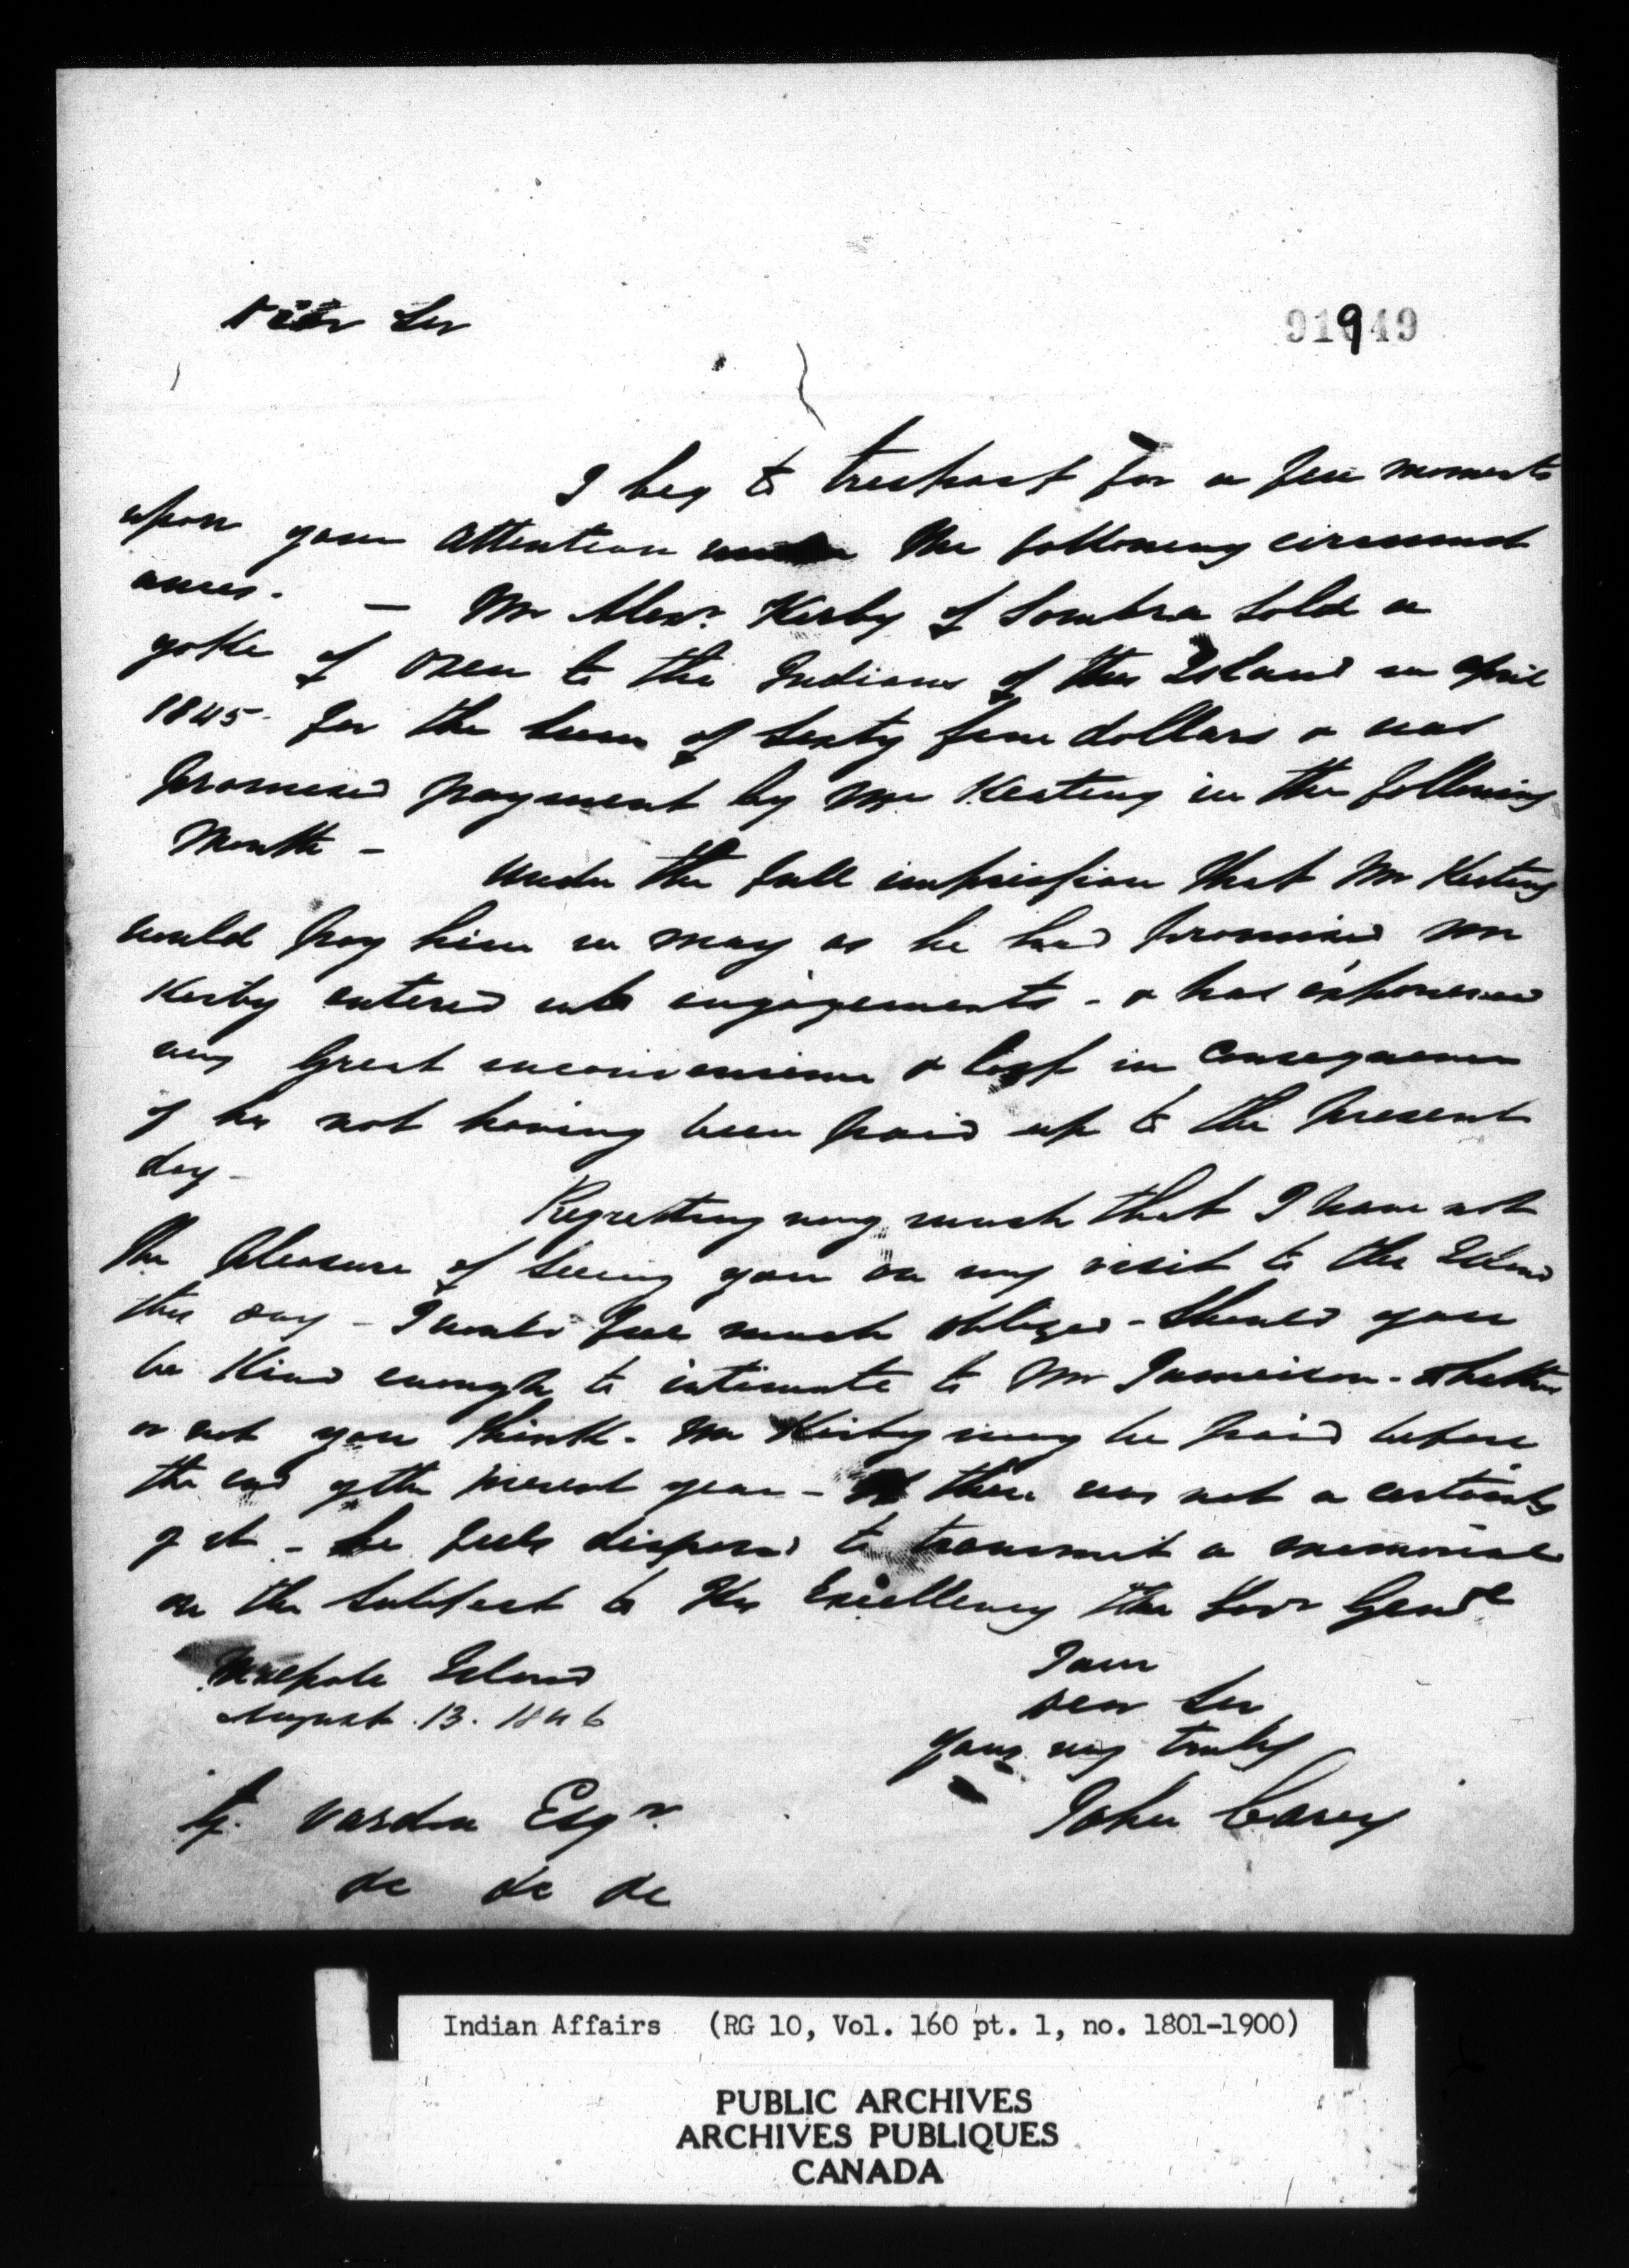 Dear Sir
91949
I beg to trespass for a few moments
upon your attention under the following circumst
ances. — Mr Alexr. Kirby of Sombra sold a
yoke of Oxen to the Indians of this Island in April
1845 - for the sum of sixty four dollars & was
promised payment by Mr Keating in the following
Month -
under the full impression that Mr Keating
would pay him in may as he had promised Mr
Kirby entered into engagements - & has experienced
very Great inconvenience & loss in consequence
of his not having been paid up to the present
day -
Regretting very much that I have not
the pleasure of seeing you on my visit to the Island
this day - I would feel much obliged - should you
be Kind enough to intimate to Mr Jameison - whether
or not you think - Mr Kirby may be paid before
the end of the present year - If there was not a certainty
of it - he feels disposed to transmit a memorial
on the subject to His Excellency the Govr Genrl
Walpole Island
August 13. 1846
I am
Dear Sir
yours very truly
John Carey
G. Vardon Esqr.
&c &c &c
Indian Affairs (RG 10, Vol. 160 pt. 1, no. 1801-1900)
PUBLIC ARCHIVES
ARCHIVES PUBLIQUES
CANADA